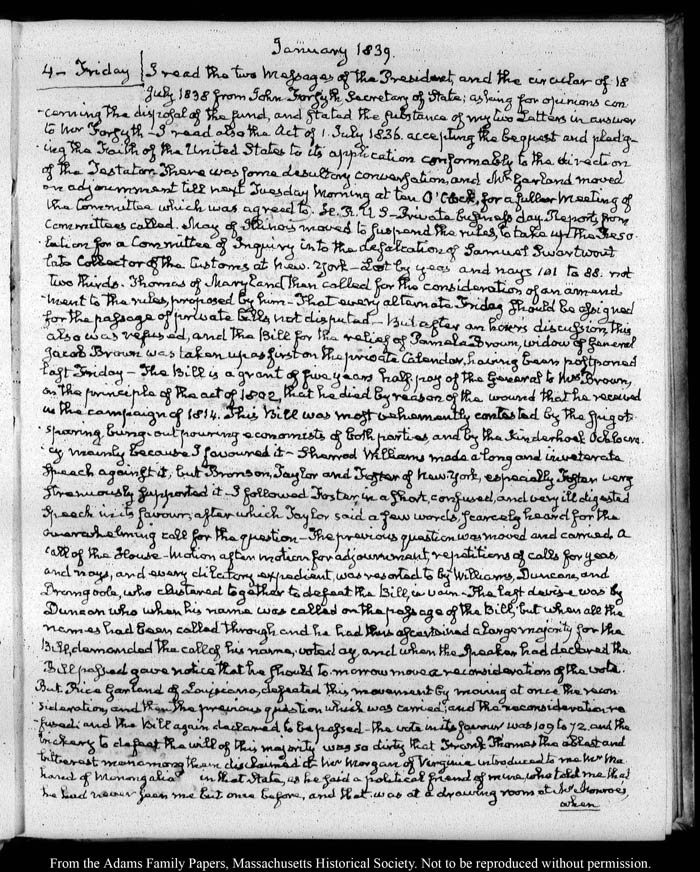 January 1839.
4 - Friday I read the two Messages of the President, and the circular of 18
July 1838 from John Forsyth Secretary of State; asking for opinions con
-cerning the disposal of the fund, and stated the substance of my two Letters in answer
to Mr Forsyth - I read also the Act of 1. July 1836. accepting the bequest and pledg-
ing the Faith of the United States to its application conformably to the direction
of the Testator. There was some desultory conversation, and Mr Garland moved
an adjournment till next Tuesday Morning at ten O'Clock, for a fuller Meeting of
the Committee which was agreed to. H. R. U S - Private business day. Reports from
Committees called. May of Illinois moved to suspend the rules, to take up the Reso
-lution for a Committee of Inquiry into the defalcation of Samuel Swartwout
late Collector of the Customs at New-York - Lost by yeas and nays 101 to 88. not
two thirds. Thomas of Maryland then called for the consideration of an amend
-ment to the rules, proposed by him - That every alternate Friday should be assigned
for the passage of private bills not disputed - But after an hour's discussion, this
also was refused, and the Bill for the relief of Pamela Brown, widow of General
Jacob Brown was taken up as first on the private Calendar, having been postponed
last Friday - The Bill is a grant of five years half-pay of the General to Mrs Brown,
on the principle of the act of 1802, that he died by reason of the wound that he received
in the campaign of 1814. This Bill was most vehemently contested by the spigot
-sparing bung-out pouring economists of both parties, and by the Kinderhook
cy mainly because I favoured it - Sherrod Williams made a long and inveterate
Speech against it, but Bronson, Taylor and Foster of New York, especially Foster very
strenuously supported it - I followed Foster in a short, confused, and very ill digested
Speech in its favour; after which Taylor said a few words, scarcely heard for the
overwhelming call for the question - The previous question was moved and carried. A
call of the House - Motion after motion for adjournment, repetitions of calls for yeas
and nays, and every dilatory expedient, was resorted to by Williams, Duncan, and
Dromgoole, who clustered together to defeat the Bill, in vain - The last devise was by
Duncan who when his name was called on the passage of the Bill, but when all the
names had been called through and he had thus ascertained a large majority for the
Bill, demanded the call of his name, voted ay, and when the Speaker had declared the
Bill passed gave notice that he should to morrow move a reconsideration of the vote.
But Rice Garland of Louisiana, defeated this movement by moving at once the recon
-sideration, and then the previous question which was carried, and the reconsideration re
-fused: and the Bill again declared to be passed - the vote in its favour was 109 to 72. and the
trickery to defeat the will of this majority was so dirty that Frank Thomas the ablest and
bitterest man among them disclaimed it. Mr Morgan of Virginia introduced to me Mr
of Monongalia in that State, as he said a political friend of mine, who told me that
he had never seen me but once before, and that was at a drawing room at Mr Monroe's,
when
From the Adams Family Papers, Massachusetts Historical Society. Not to be reproduced without permission.